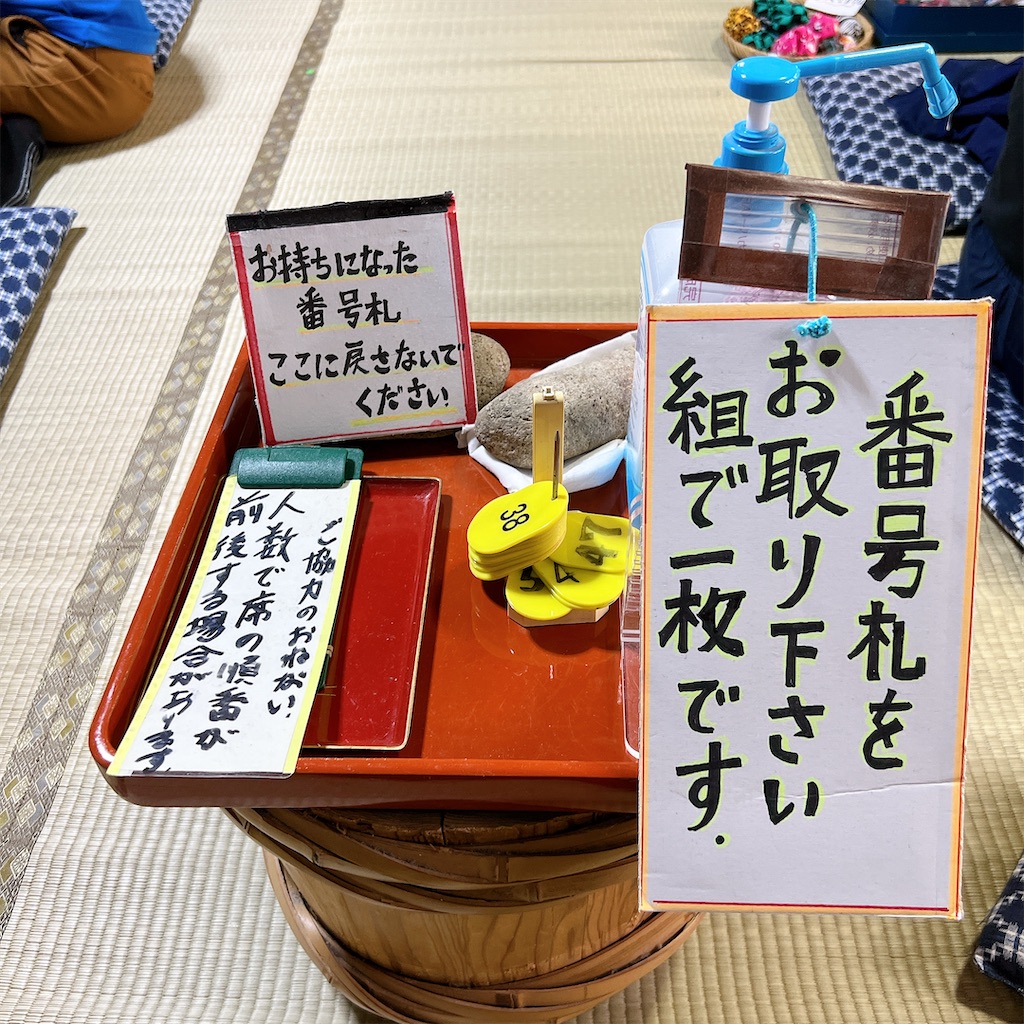 お持ちになった
番号札
ここに戻さないで
ください
番号札を
お取り下さい
組で一枚です.
ご協力のおねがい
人数で席の順番が
前後する場合があります
38
47
4
5